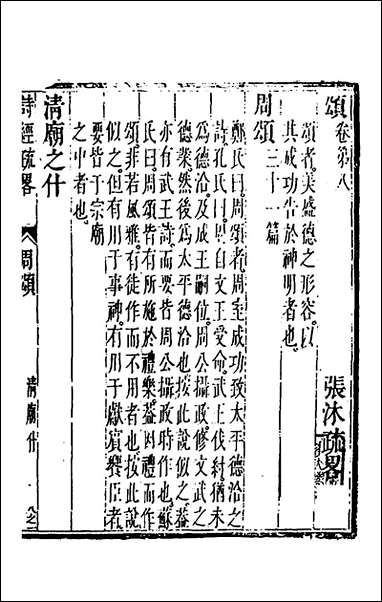 頌 卷第八 張沐疏畧
頌者美盛德之形容以
其成功告於神明者也
周頌三十一篇
鄭氏曰周頌者周室成功致太平德洽之
詩孔氏曰即自文王受命武王伐紂猶未
為德洽及成王嗣位周公攝政修文武之
德業然後為太平德洽也按此說似之蓋
亦有武王詩而要皆周公攝政時作也蘇
氏曰周頌皆有所施於禮樂蓋因禮而作
頌非若風雅有徒作而不用者也按此說
似之但有用于事神有用于獻賓饗臣者
要皆于宗廟
之中者也
清廟之什
詩經疏畧 周頌 清廟什